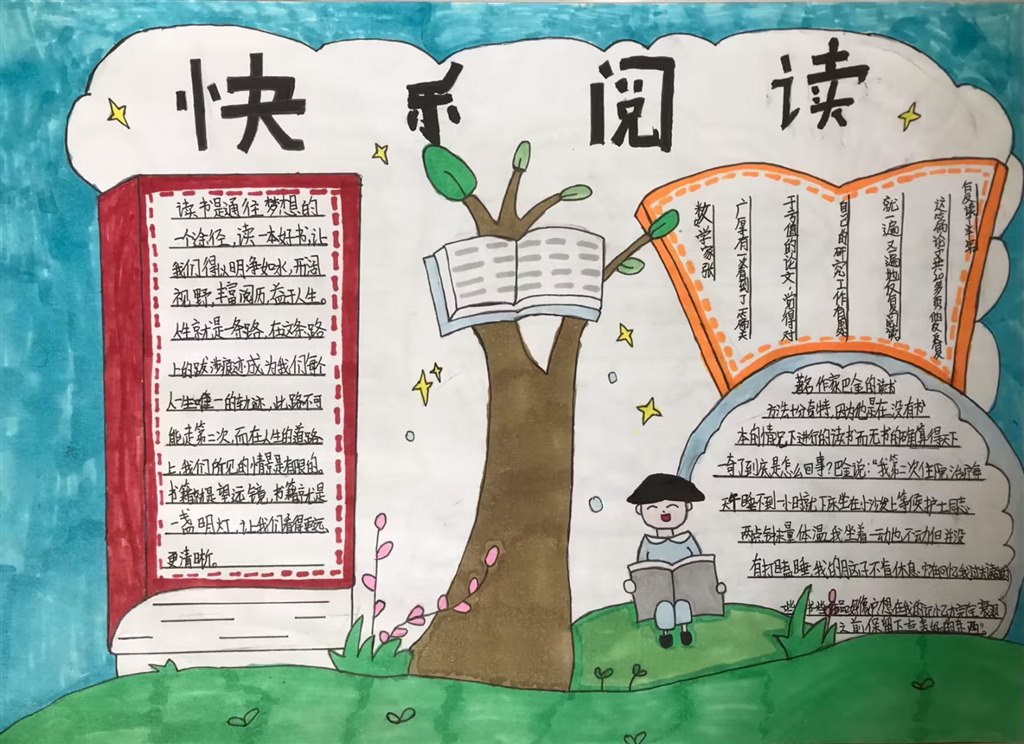 快乐阅读
读书是通往梦想的
一个途径，读一本好书，让
我们得以明净如水，开阔
视野，丰富阅历，益于人生。
人生就是一条路，在这条路
上的跋涉痕迹成为我们每个
人一生唯一的轨迹，此路不可
能走第二次，而在人生的道路
上，我们所见的情景是有限的。
书籍就是望远镜，书籍就是
一盏明灯，让我们看得更远、
更清晰。
数学家张
广厚有一次看到了一篇关
于亏值的论文，觉得对
自己的研究工作有用处
就一遍又一遍地反复阅读
这篇论文共 页他反反复复
著名作家巴金的读书
方法十分奇特，因为他是在没有书
本的情况下进行的读书而无书的确算得天下
奇了到底是怎么回事？巴金说：“我第二次住院治疗每
天午睡不到一小时就下床坐在小沙发上等候护士同志
两点钟来量体温，我坐着一动也不动但并没
有打瞌睡，我的脑子不肯休息。它在回忆我过去读过的
一些 作品，好像它想在我的记忆力完全衰退
之前，保留下一点美好的东西。”